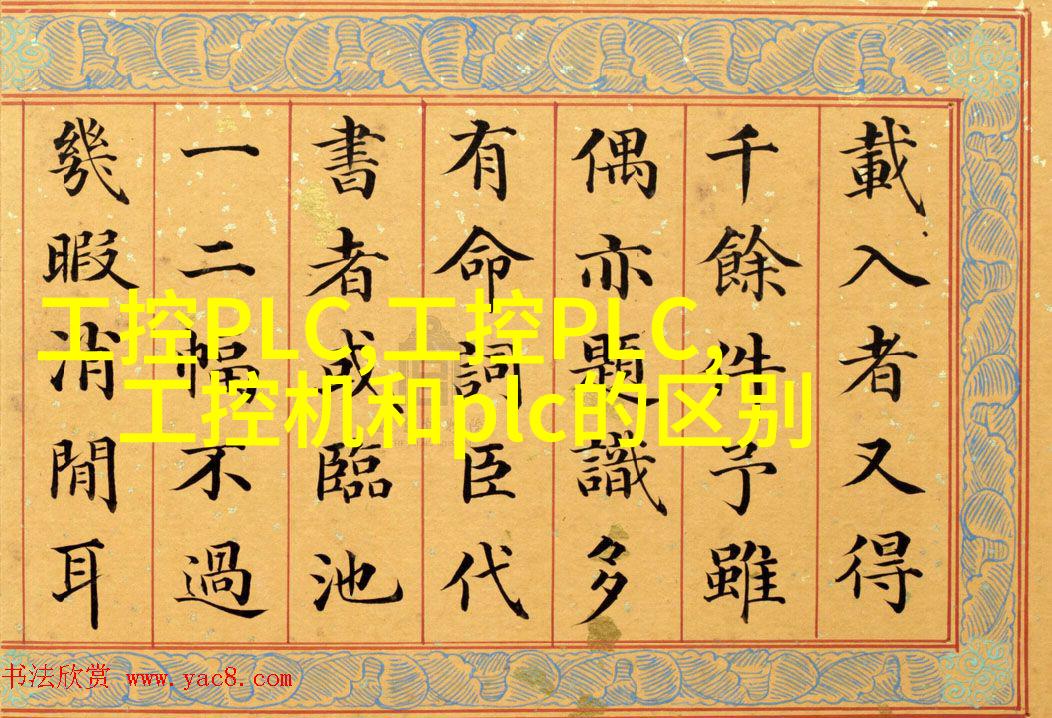 載入者又得
千餘件予雖
偶亦題識多
有命詞臣代
書者成臨池
一二幅不過
幾暇消閒耳
工控PLC,工控PLC,
工控机和plc的区别
书法欣赏 www.yac8.com